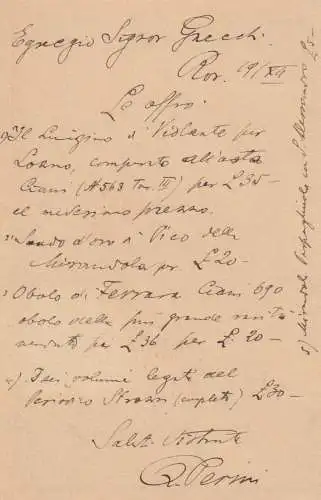 Egregio Signor Gnecchi.
Rov. 19/XII
Le offro:
1) Il Luigino di Violante per
Loano, comperato all'asta
Ciani (N 568 Tav. III) per £35-
al medesimo prezzo.
2) Scudo d'oro di Pico della
Mirandola pr. £20-
3) Obolo di Ferrara Ciani 690
obolo della più grande rarità
venduto pr £36 per £. 20-
4) I sei volumi legati del
Periodico Strozzi (completo) £30-
Saluti distinti
Q. Perini
5) Mirandola £5-